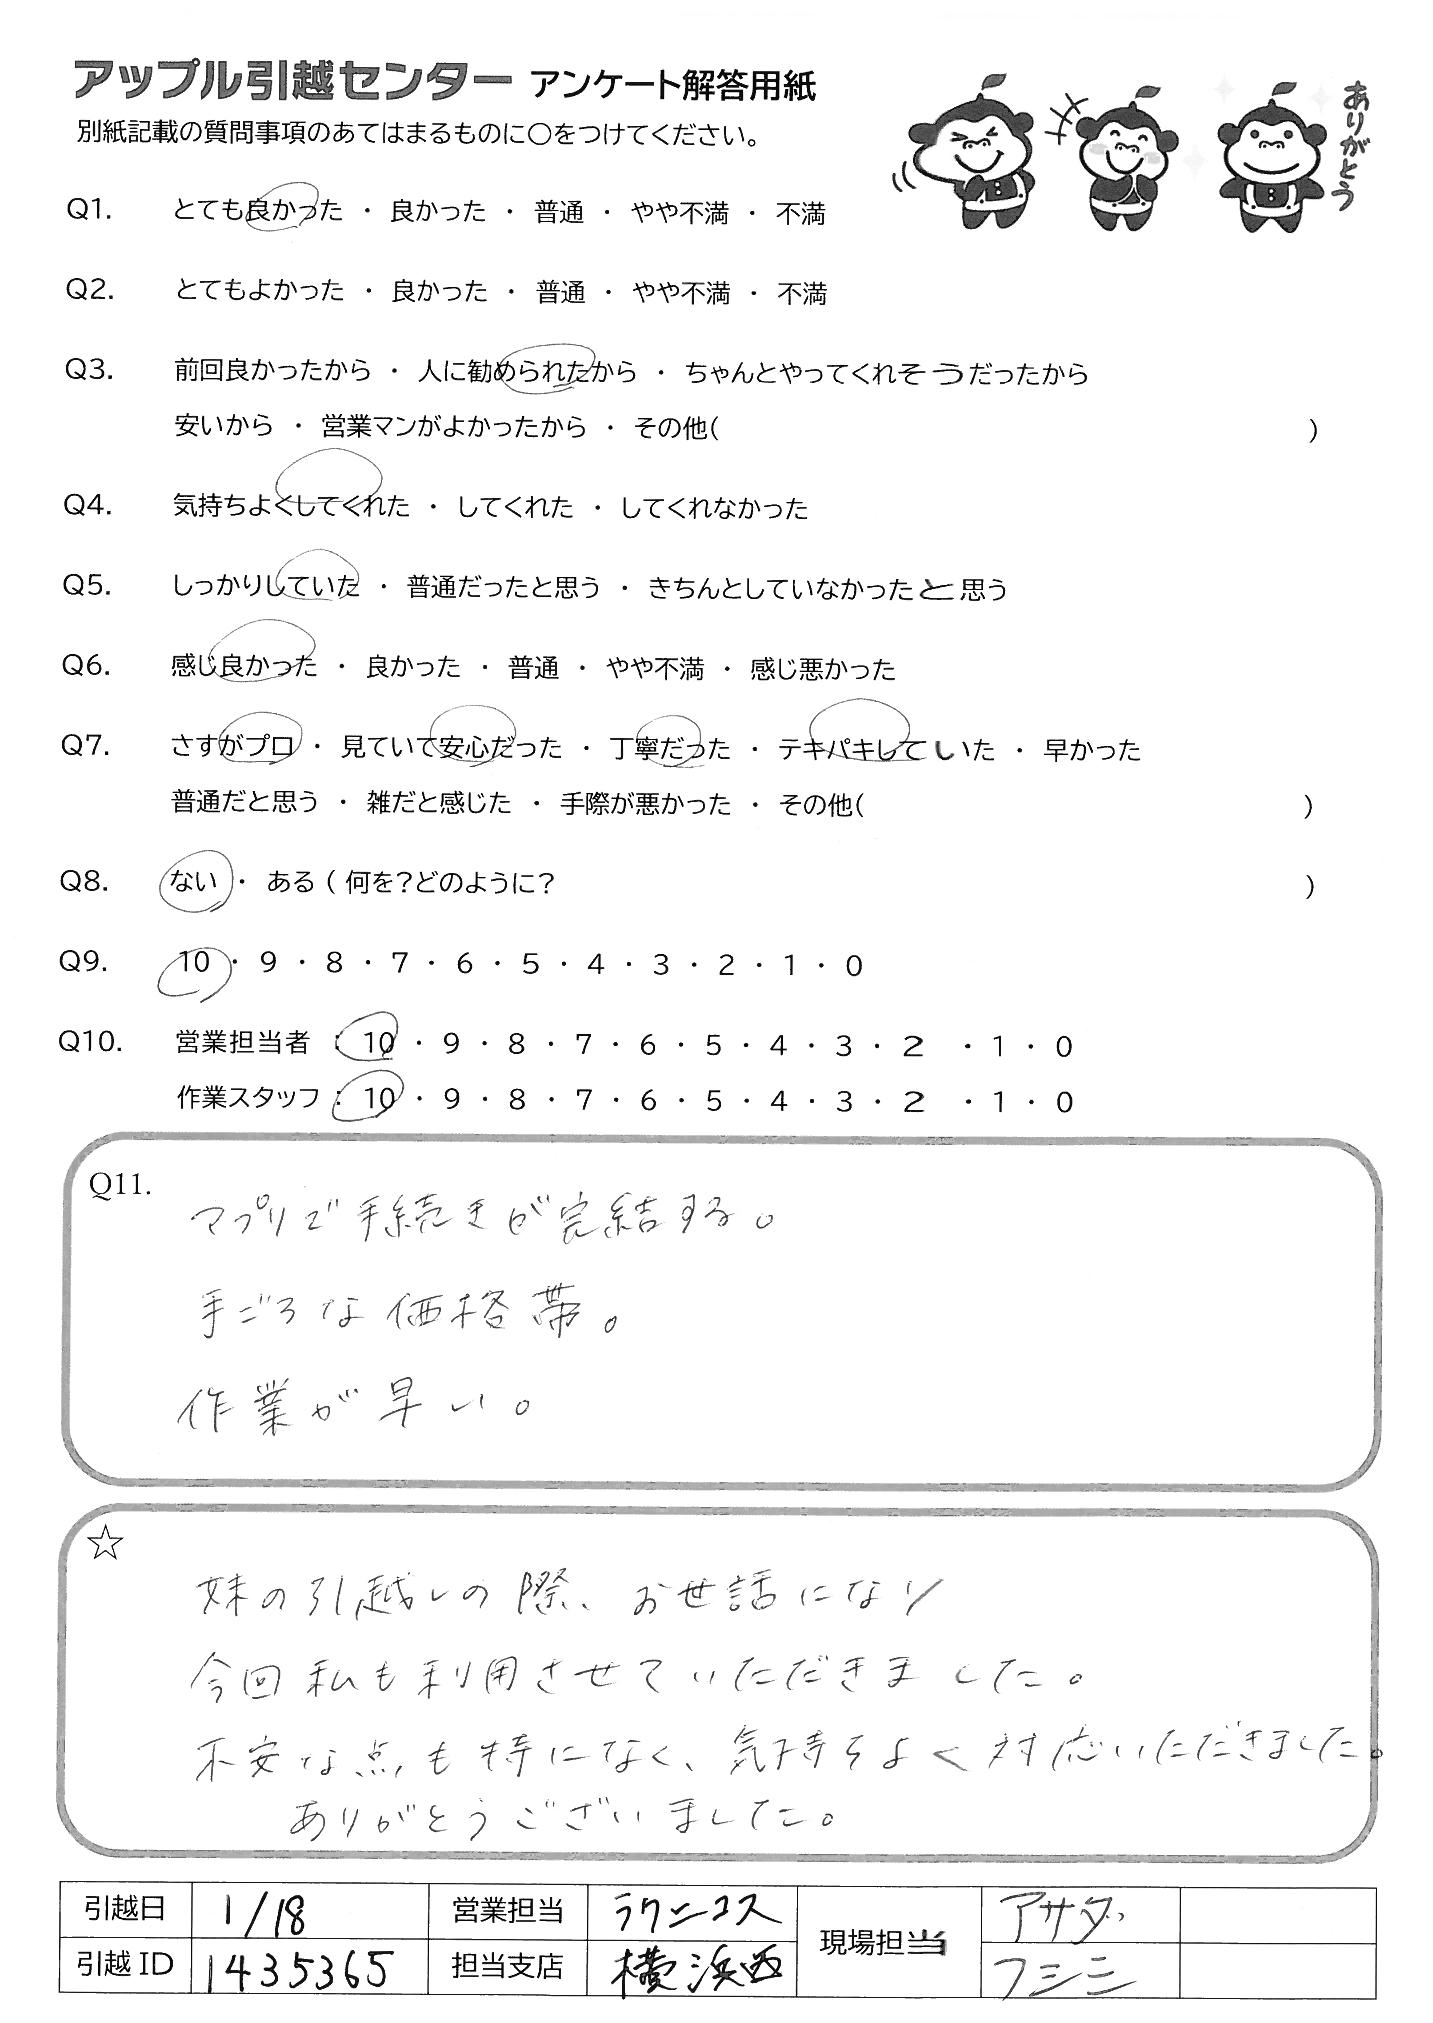 アップル引越センター アンケート解答用紙
ありがとう
別紙記載の質問事項のあてはまるものに○をつけてください。
Q1. とても良かった ・ 良かった ・ 普通 ・ やや不満 ・ 不満
Q2. とてもよかった ・ 良かった ・ 普通 ・ やや不満 ・ 不満
Q3. 前回良かったから ・ 人に勧められたから ・ ちゃんとやってくれそうだったから
安いから ・ 営業マンがよかったから ・ その他( )
Q4. 気持ちよくしてくれた ・ してくれた ・ してくれなかった
Q5. しっかりしていた ・ 普通だったと思う ・ きちんとしていなかったと思う
Q6. 感じ良かった ・ 良かった ・ 普通 ・ やや不満 ・ 感じ悪かった
Q7. さすがプロ ・ 見ていて安心だった ・ 丁寧だった ・ テキパキしていた ・ 早かった
普通だと思う ・ 雑だと感じた ・ 手際が悪かった ・ その他( )
Q8. ない ・ ある ( 何を?どのように? )
Q9. 10 ・ 9 ・ 8 ・ 7 ・ 6 ・ 5 ・ 4 ・ 3 ・ 2 ・ 1 ・ 0
Q10. 営業担当者 : 10 ・ 9 ・ 8 ・ 7 ・ 6 ・ 5 ・ 4 ・ 3 ・ 2 ・ 1 ・ 0
作業スタッフ : 10 ・ 9 ・ 8 ・ 7 ・ 6 ・ 5 ・ 4 ・ 3 ・ 2 ・ 1 ・ 0
Q11.
アプリで手続きが完結する。
手ごろな価格帯。
作業が早い。
☆
妹の引越しの際、お世話になり
今回私も利用させていただきました。
不安な点も特になく、気持ちよく対応いただきました。
ありがとうございました。
引越日 1/18 営業担当 ラクニコス 現場担当 アサダ
引越ID 1435365 担当支店 横浜西 フシミ